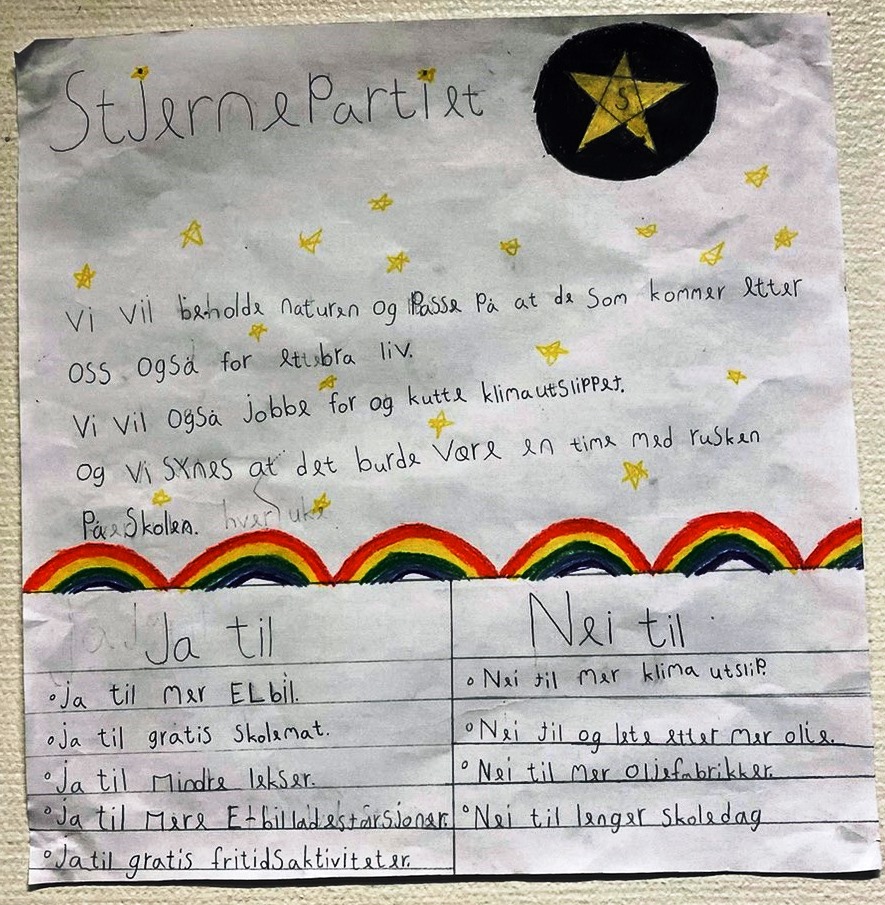 StjernePartiet
S
Vi vil beholde naturen og Passe På at de Som kommer etter
oss også for et bra liv.
Vi Vil også jobbe for og kutte klimautslippet.
Og Vi SXnes at det burde Være en time med rusken
På Skolen. hver uke
Ja til
Nei til
Ja til mer ELbil.
Nei til mer klima utsliP.
Ja til gratis Skolemat.
Nei til og lete etter mer olie.
Ja til Mindre lekser.
Nei til mer Oljefabrikker.
Ja til Mere
Nei til lenger skoledag
Ja til gratis fritidsaktiviteter.